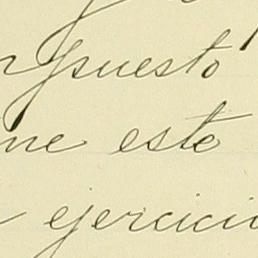 puesto
ne este
ejercici